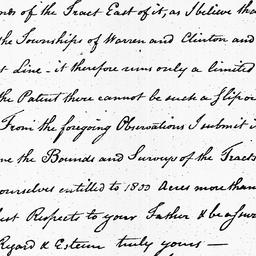 nds of the Tract East of it, as I believe tha
the Townships of Warren and Clinton and
t Line - it therefore runs only a limited
the Patent there cannot be such a Slip or
From the foregoing Observations I submit i
ne the Bounds and Surveys of the Tracts
ourselves entitled to 1800 Acres more than
est Respects to your Father & be assur
Regard & Esteem truly yours —